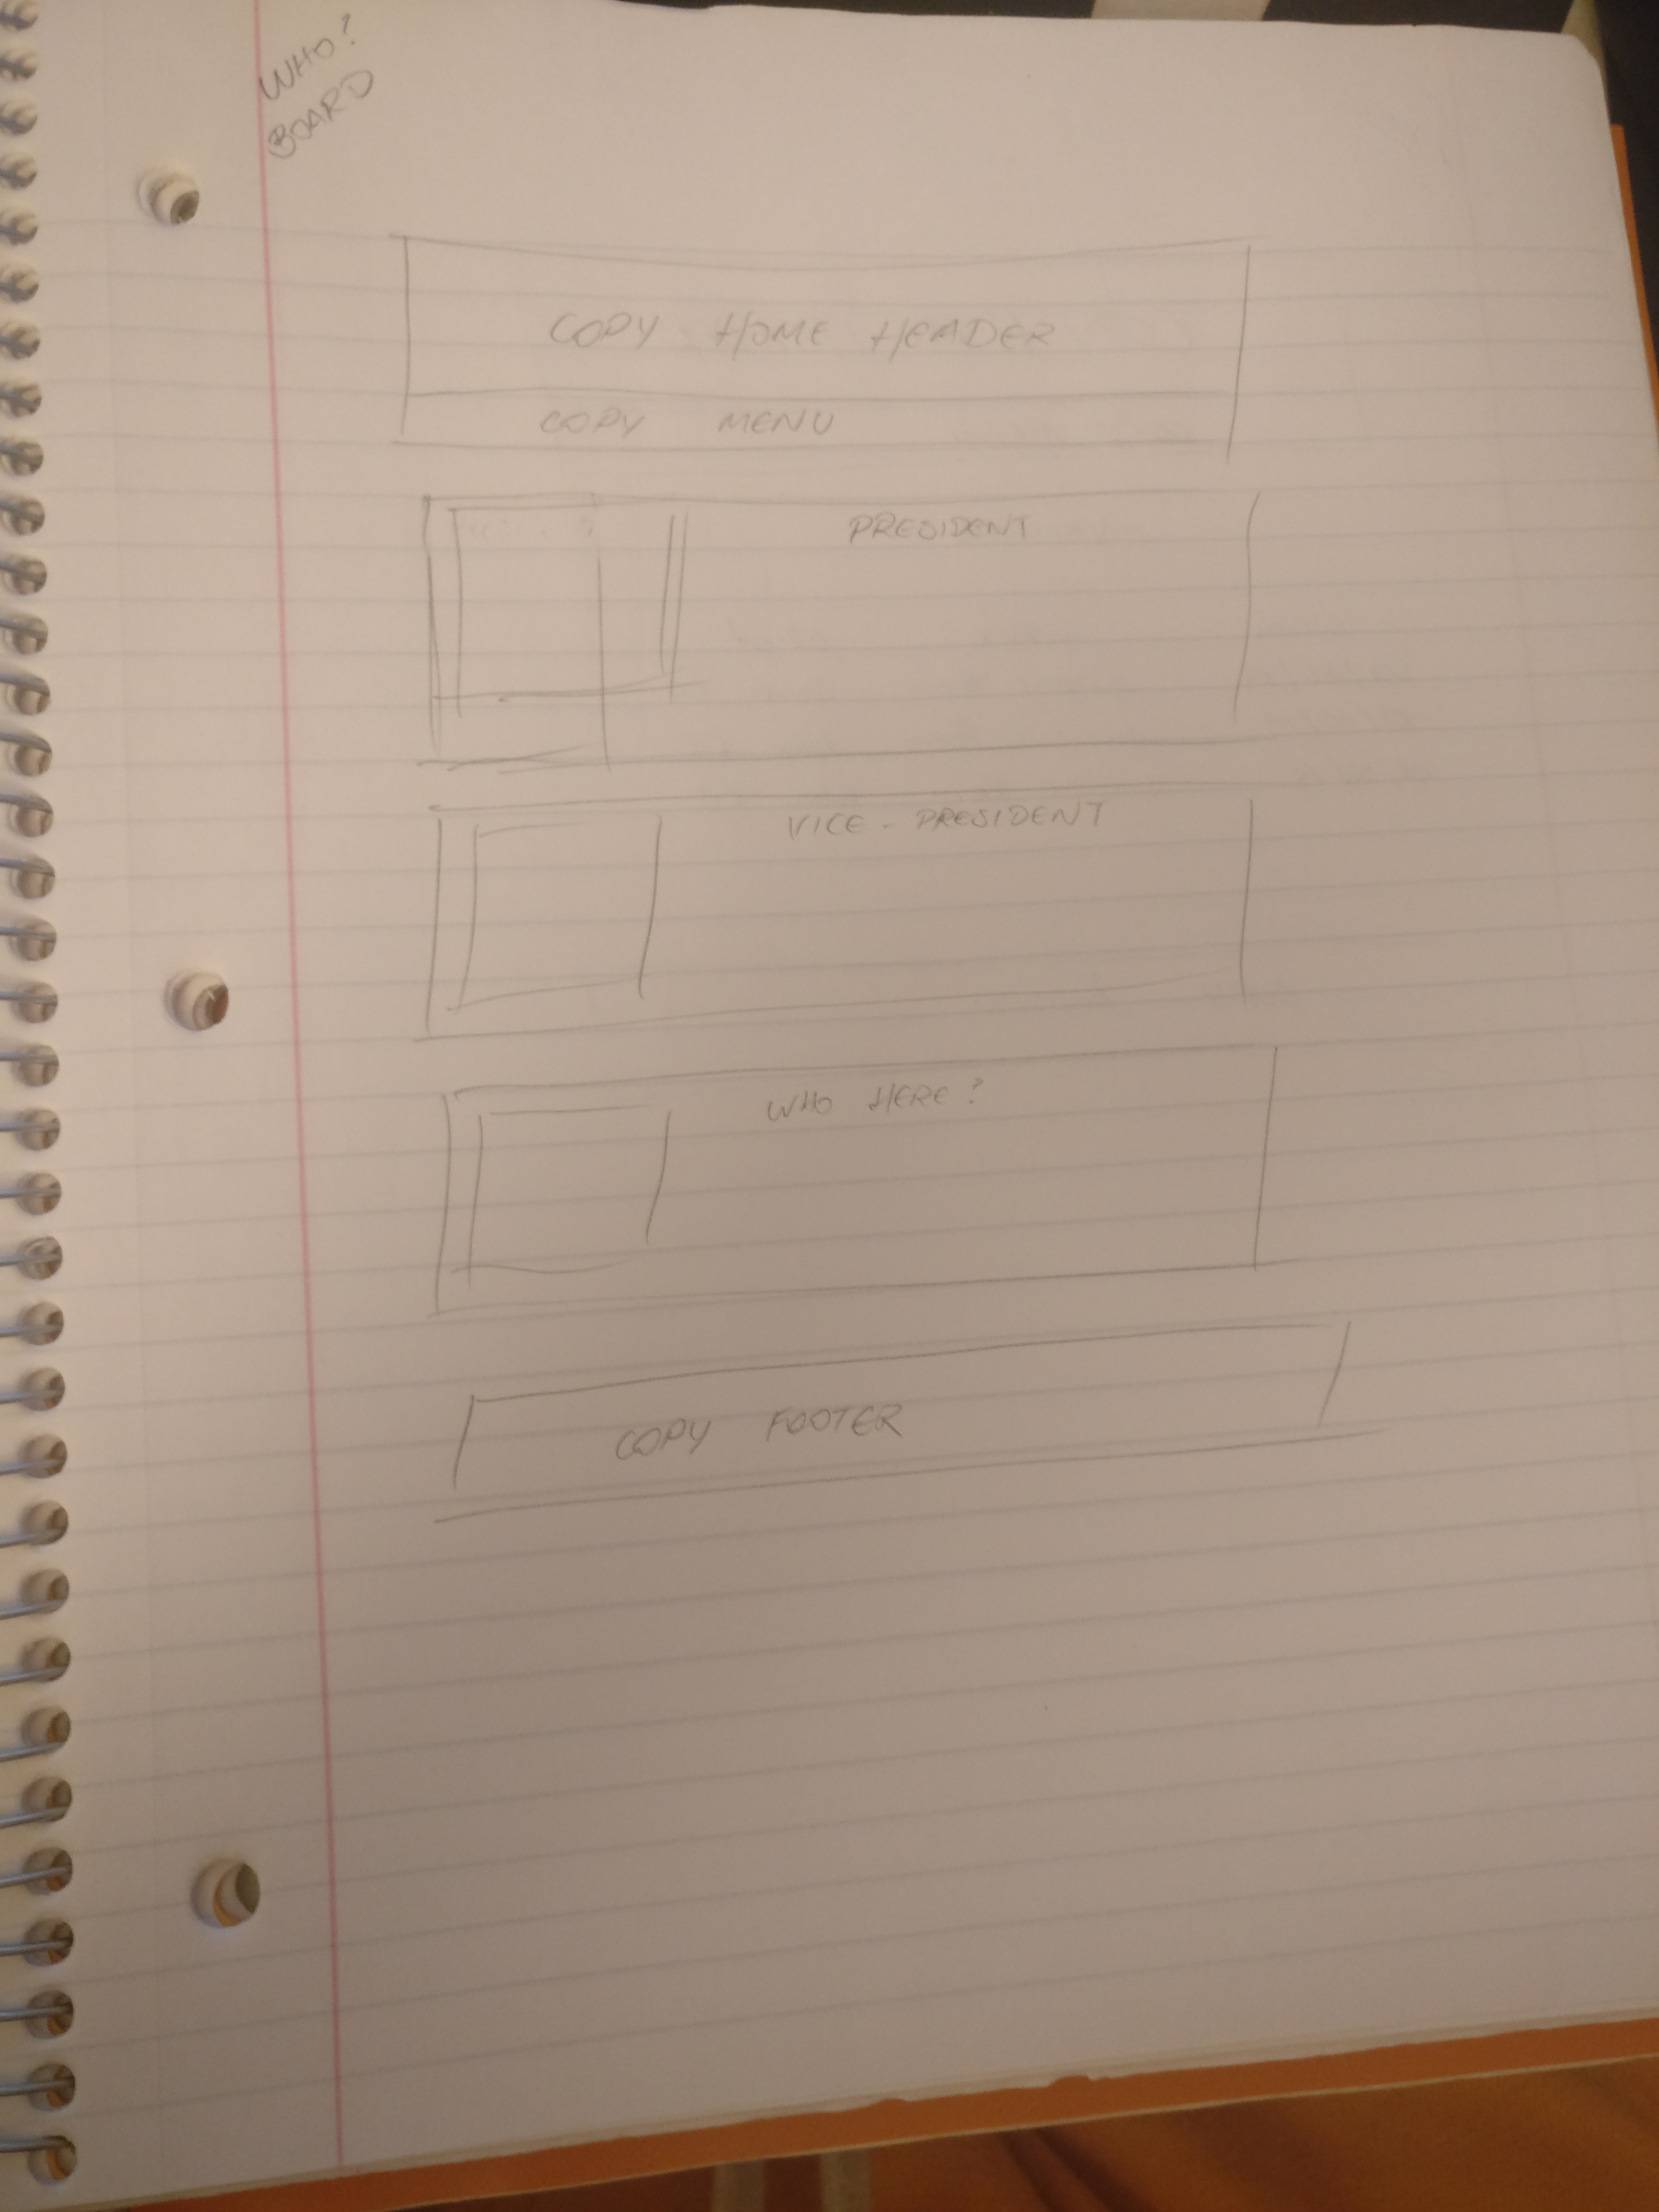 WHO?
BOARD
COPY HOME HEADER
COPY MENU
PRESIDENT
VICE - PRESIDENT
WHO HERE?
COPY FOOTER